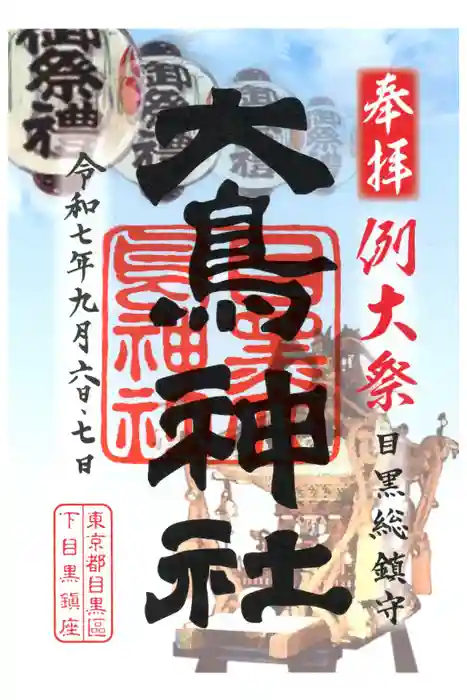 奉拝
例大祭
目黒総鎮守
大鳥神社
令和七年九月六日・七日
東京都目黒區
下目黒鎮座
御祭禮
御祭禮
御祭禮
御祭禮